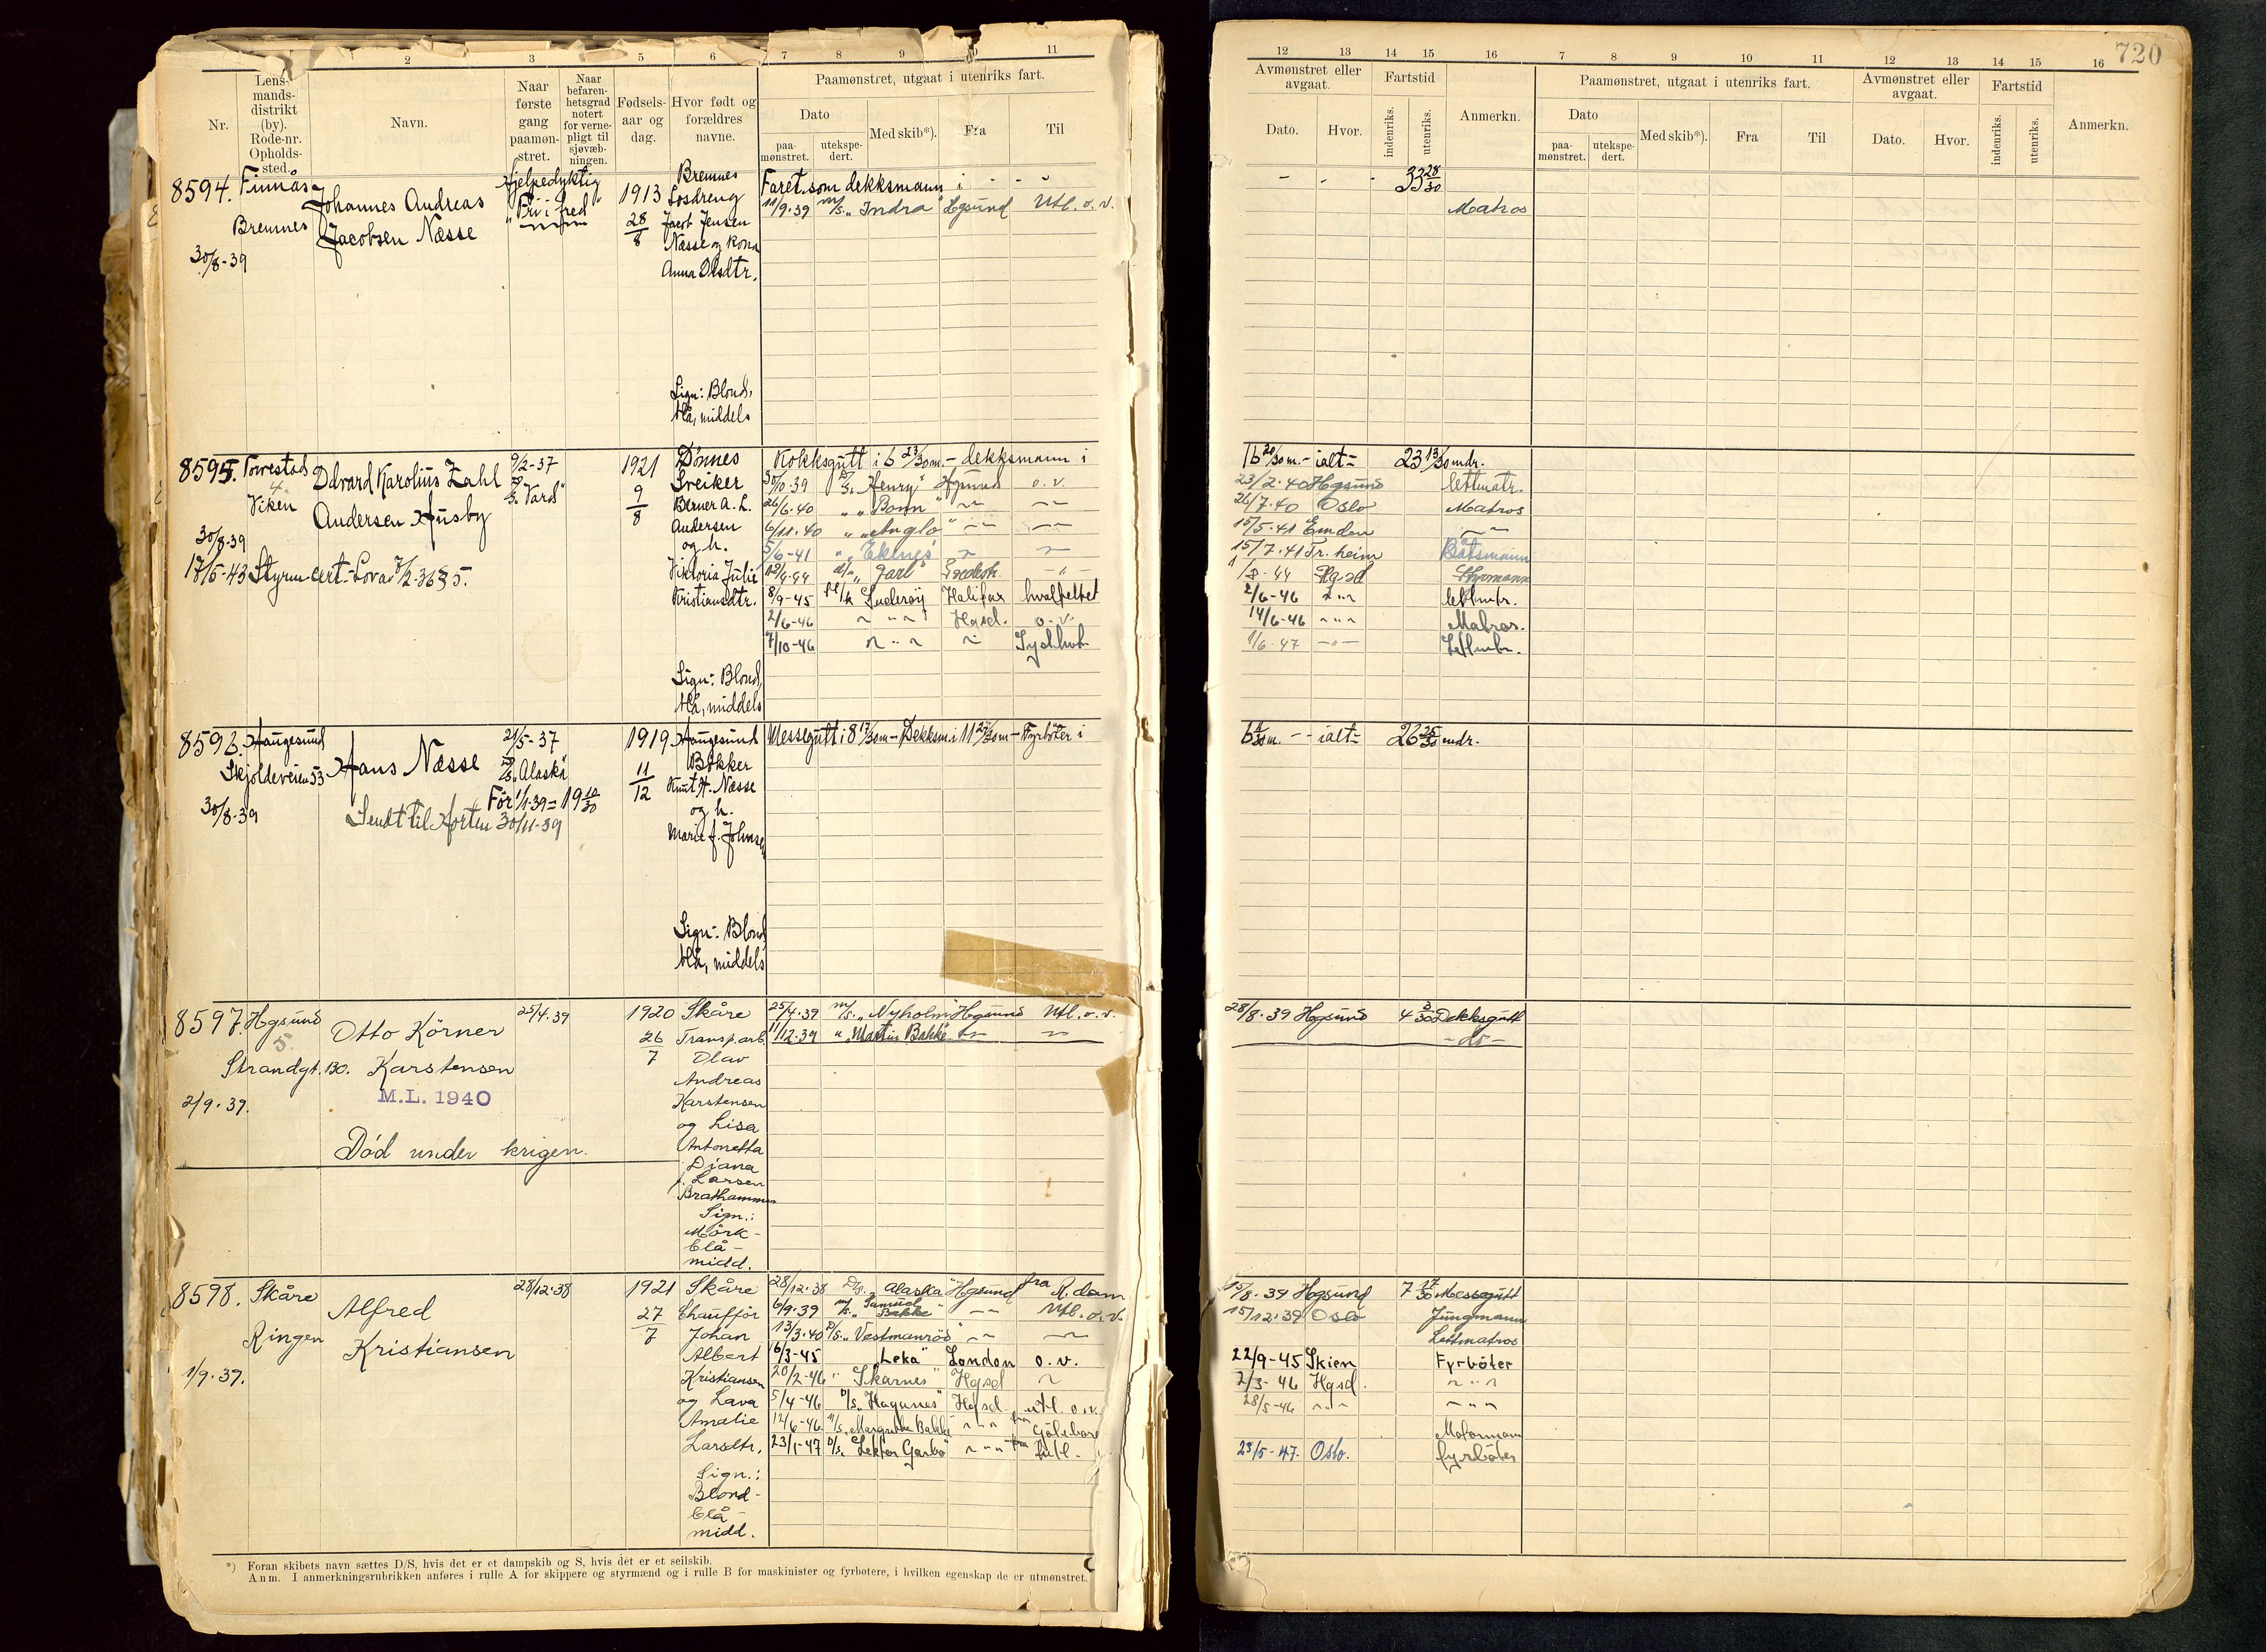 720
2 3 5 6 7 8 9 11
12 13 14 15 16 7 8 9 10 11 12 13 14 15 16
Nr.
Lens-
mands-
distrikt
(by).
Rode-nr.
Opholds-
sted.
Navn.
Naar
første
gang
paamøn-
stret.
Naar
befaren-
hetsgrad
notert
for verne-
pligt til
sjøvæb-
ningen.
Fødsels-
aar og
dag.
Hvor født og
forældres
navne.
Paamønstret, utgaat i utenriks fart.
Dato
paa-
mønstret.
utekspe-
dert.
Med skib*).
Fra
Til
Avmønstret eller
avgaat.
Dato.
Hvor.
Fartstid
indenriks.
utenriks.
Anmerkn.
Paamønstret, utgaat i utenriks fart.
Dato
paa-
mønstret.
utekspe-
dert.
Med skib*).
Fra
Til
Avmønstret eller
avgaat.
Dato.
Hvor.
Fartstid
indenriks.
utenriks.
Anmerkn.
8594. Finnås
Bremnes
30/8-39
Johannes Andreas
Jacobsen Næsse
Hjelpedyktig
"Fri i fred"
1913
28/8
Bremnes
Losdreng
Jacob Jensen
Næsse og kona
Anna Olsdtr.
Sign: Blond,
blå, middels
Faret som dekksmann i - - - - - 33 28/30
11/9.39 m/s. "Indra" Hgsund Utl. o. v. Matros
8595. Torvestad
4.
Viken
30/8-39
Edvard Karolius Zahl
Andersen Husby
9/2-37
D/S. "Vard"
17/5-43 Styrm. cert.
1921
9/8
Dønnes
Sveiker
Berner A. L.
Andersen
og h.
Viktoria Julie
Kristiansdtr.
Sign: Blond,
blå, middels
Kokksgutt i 6 23/30 m. - dekksmann i 16 20/30 m. - ialt = 23 13/30 mdr.
30/10.39 D/S. "Henry" Hgsund o. v. 23/2.40 Hgsund lettmatr.
26/6.40 " "Bonn" 26/7.40 Oslo Matros
6/11.40 " "Anglo" 15/5.41 Emden
5/6-41 " "Eknes" 15/7.41 Tr. heim Båtsmann
"Jarl" 44 Hgsd Styrmann
8/9-45 fl/k Suderøy Halifax hvalfeltet 2/6-46 lettmtr.
2/6-46 Hgsd. o. v. 14/6-46 Matros.
7/10-46 Sydhvh. 1/6-47 Lettmtr.
8596. Haugesund
Skjoldeveien 53
30/8-39
Hans Næsse
Sendt til Horten 30/11-39
21/5-37
D/S. "Alaska"
Før 1/1-39 = 19 10/30
1919
11/12
Haugesund
Bøkker
Knut H. Næsse
og h.
Marie f. Johnsen
Sign: Blond,
blå, middels
Messegutt i 8 17/30 m - Dekksm. i 11 - Fyrbøter i
ialt = 26 25/30 mdr.
8597. Hgsund
5.
Strandgt. 130.
2/9.39.
Otto Körner
Karstensen
M.L. 1940
Død under krigen.
25/4.39
1920
26/7
Skåre
Transp. arb.
Olav
Andreas
Karstensen
og Lisa
Antonetta
Diana
f. Larsen
Brathammer
Sign.:
Mörk -
blå -
midd.
25/4.39 m/s. "Nyholm" Hgsund Utl. o. v. 28/8.39 Hgsund 4 3/30 Dekksgutt
11/12.39 " "Martin Bakke" - do -
8598. Skåre
Ringen
1/9.39.
Alfred
Kristiansen
28/12.38
1921
27/7
Skåre
Chaufför
Johan
Albert
Kristiansen
og Lava
Amalie
Larsdtr.
Sign.:
Blond -
blå -
midd.
28/12.38 D/s. "Alaska" Hgsund fra R.dam 15/8.39 Hgsund 7 17/30 Messegutt
6/9.39 m/s. "Samuel Bakke" Utl. o. v. 15/12.39 Oslo Jungmann
13/3.40 D/s. "Vestmanröd" Lettmatros
16/3-45 "Leka" London o. v. 22/9-45 Skien Fyrbøter
20/2-46 "Skarnes" Hgsd 2/3-46 Hgsd.
5/4-46 D/S. "Hagnes" Hgsd utl. o. v. 28/5-46
12/6-46 M/S. "Margrethe Bakke" fra Göteborg Motormann
23/1-47 D/S. "Lektor Garbo" fra Utl. 23/5-47. Oslo. fyrbøter
*) Foran skibets navn sættes D/S, hvis det er et dampskib og S, hvis det er et seilskib.
Anm. I anmerkningsrubrikken anføres i rulle A for skippere og styrmænd og i rulle B for maskinister og fyrbøtere, i hvilken egenskap de er utmønstret.